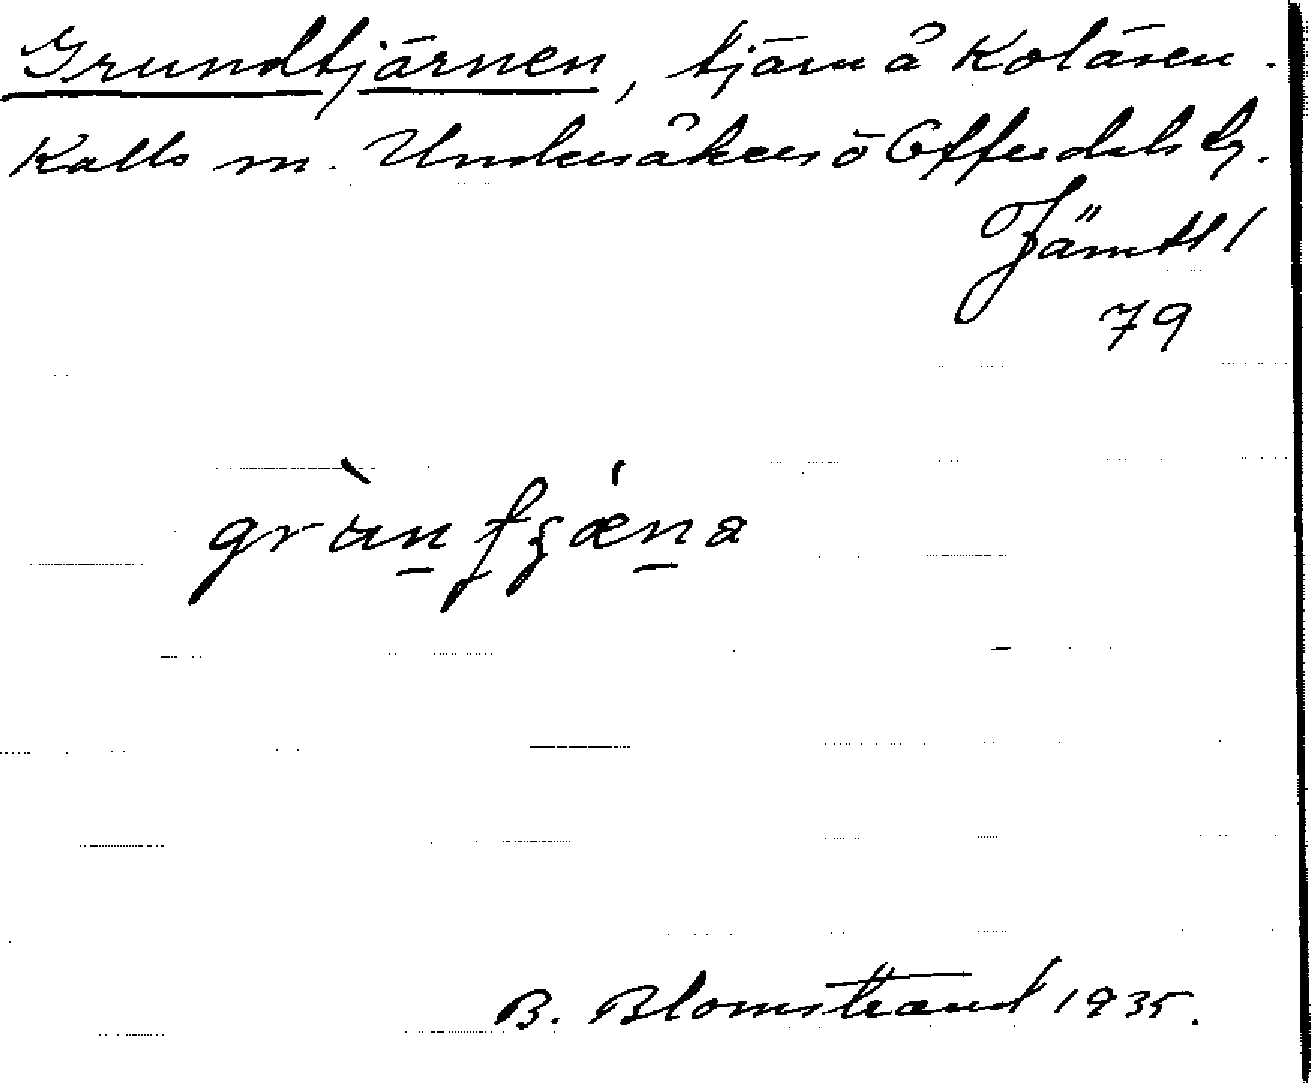 Grundtjärnen, tjärn å Kolåsen.
Kalls sn. Undersåkers o Offerdals tg.
Jämtl
79
grùnfʒǽna
B. Blomstrand 1935.